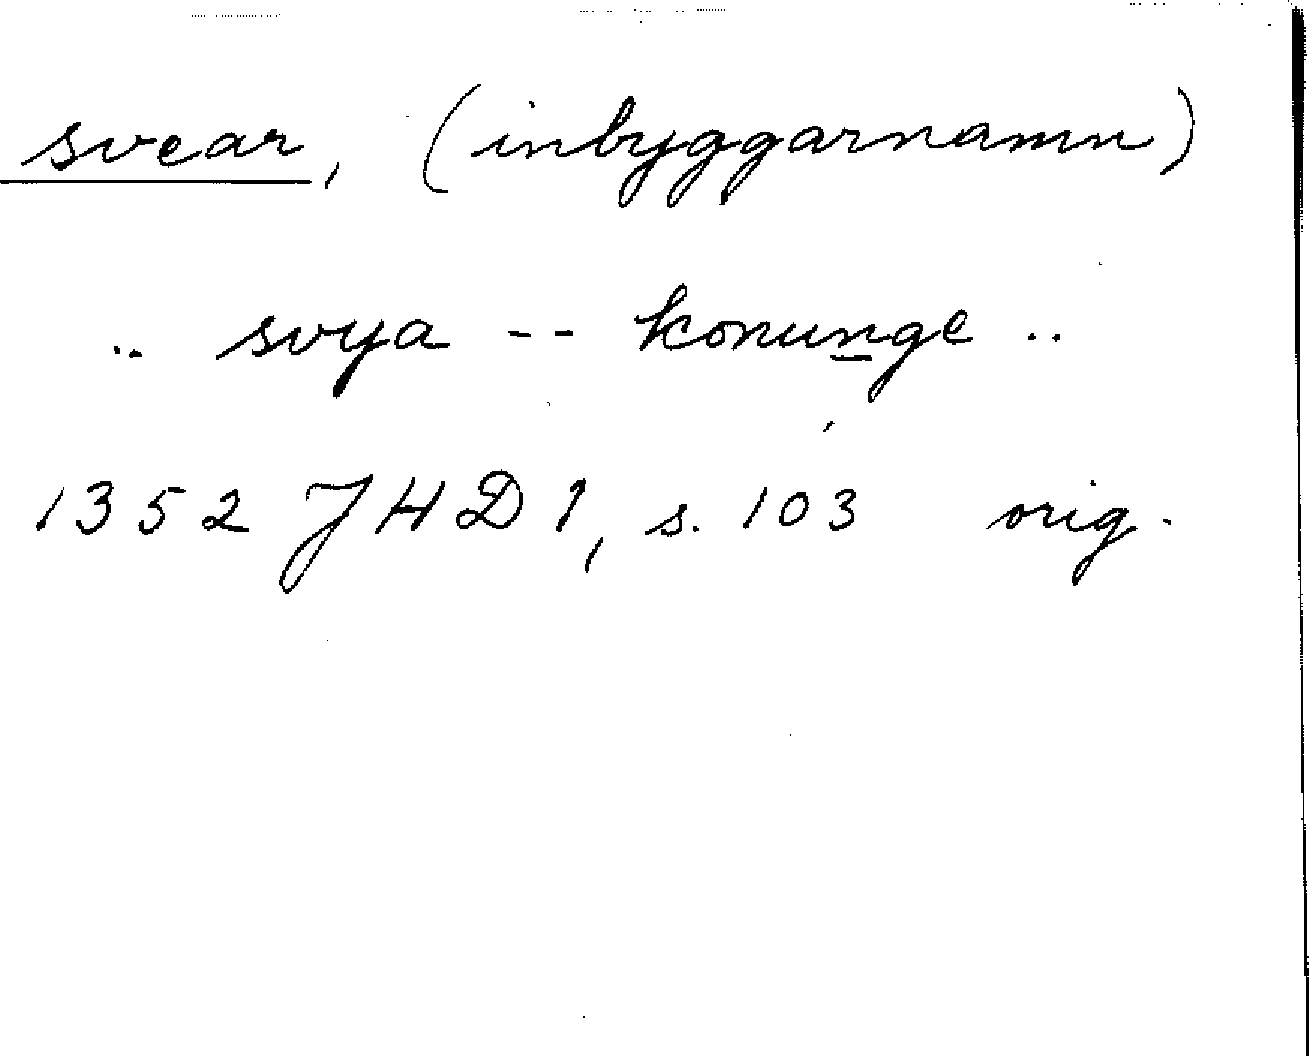 svear, (inbyggarnamn)
.. svya -- konunge ..
1352 JHD 1, s. 103 orig.